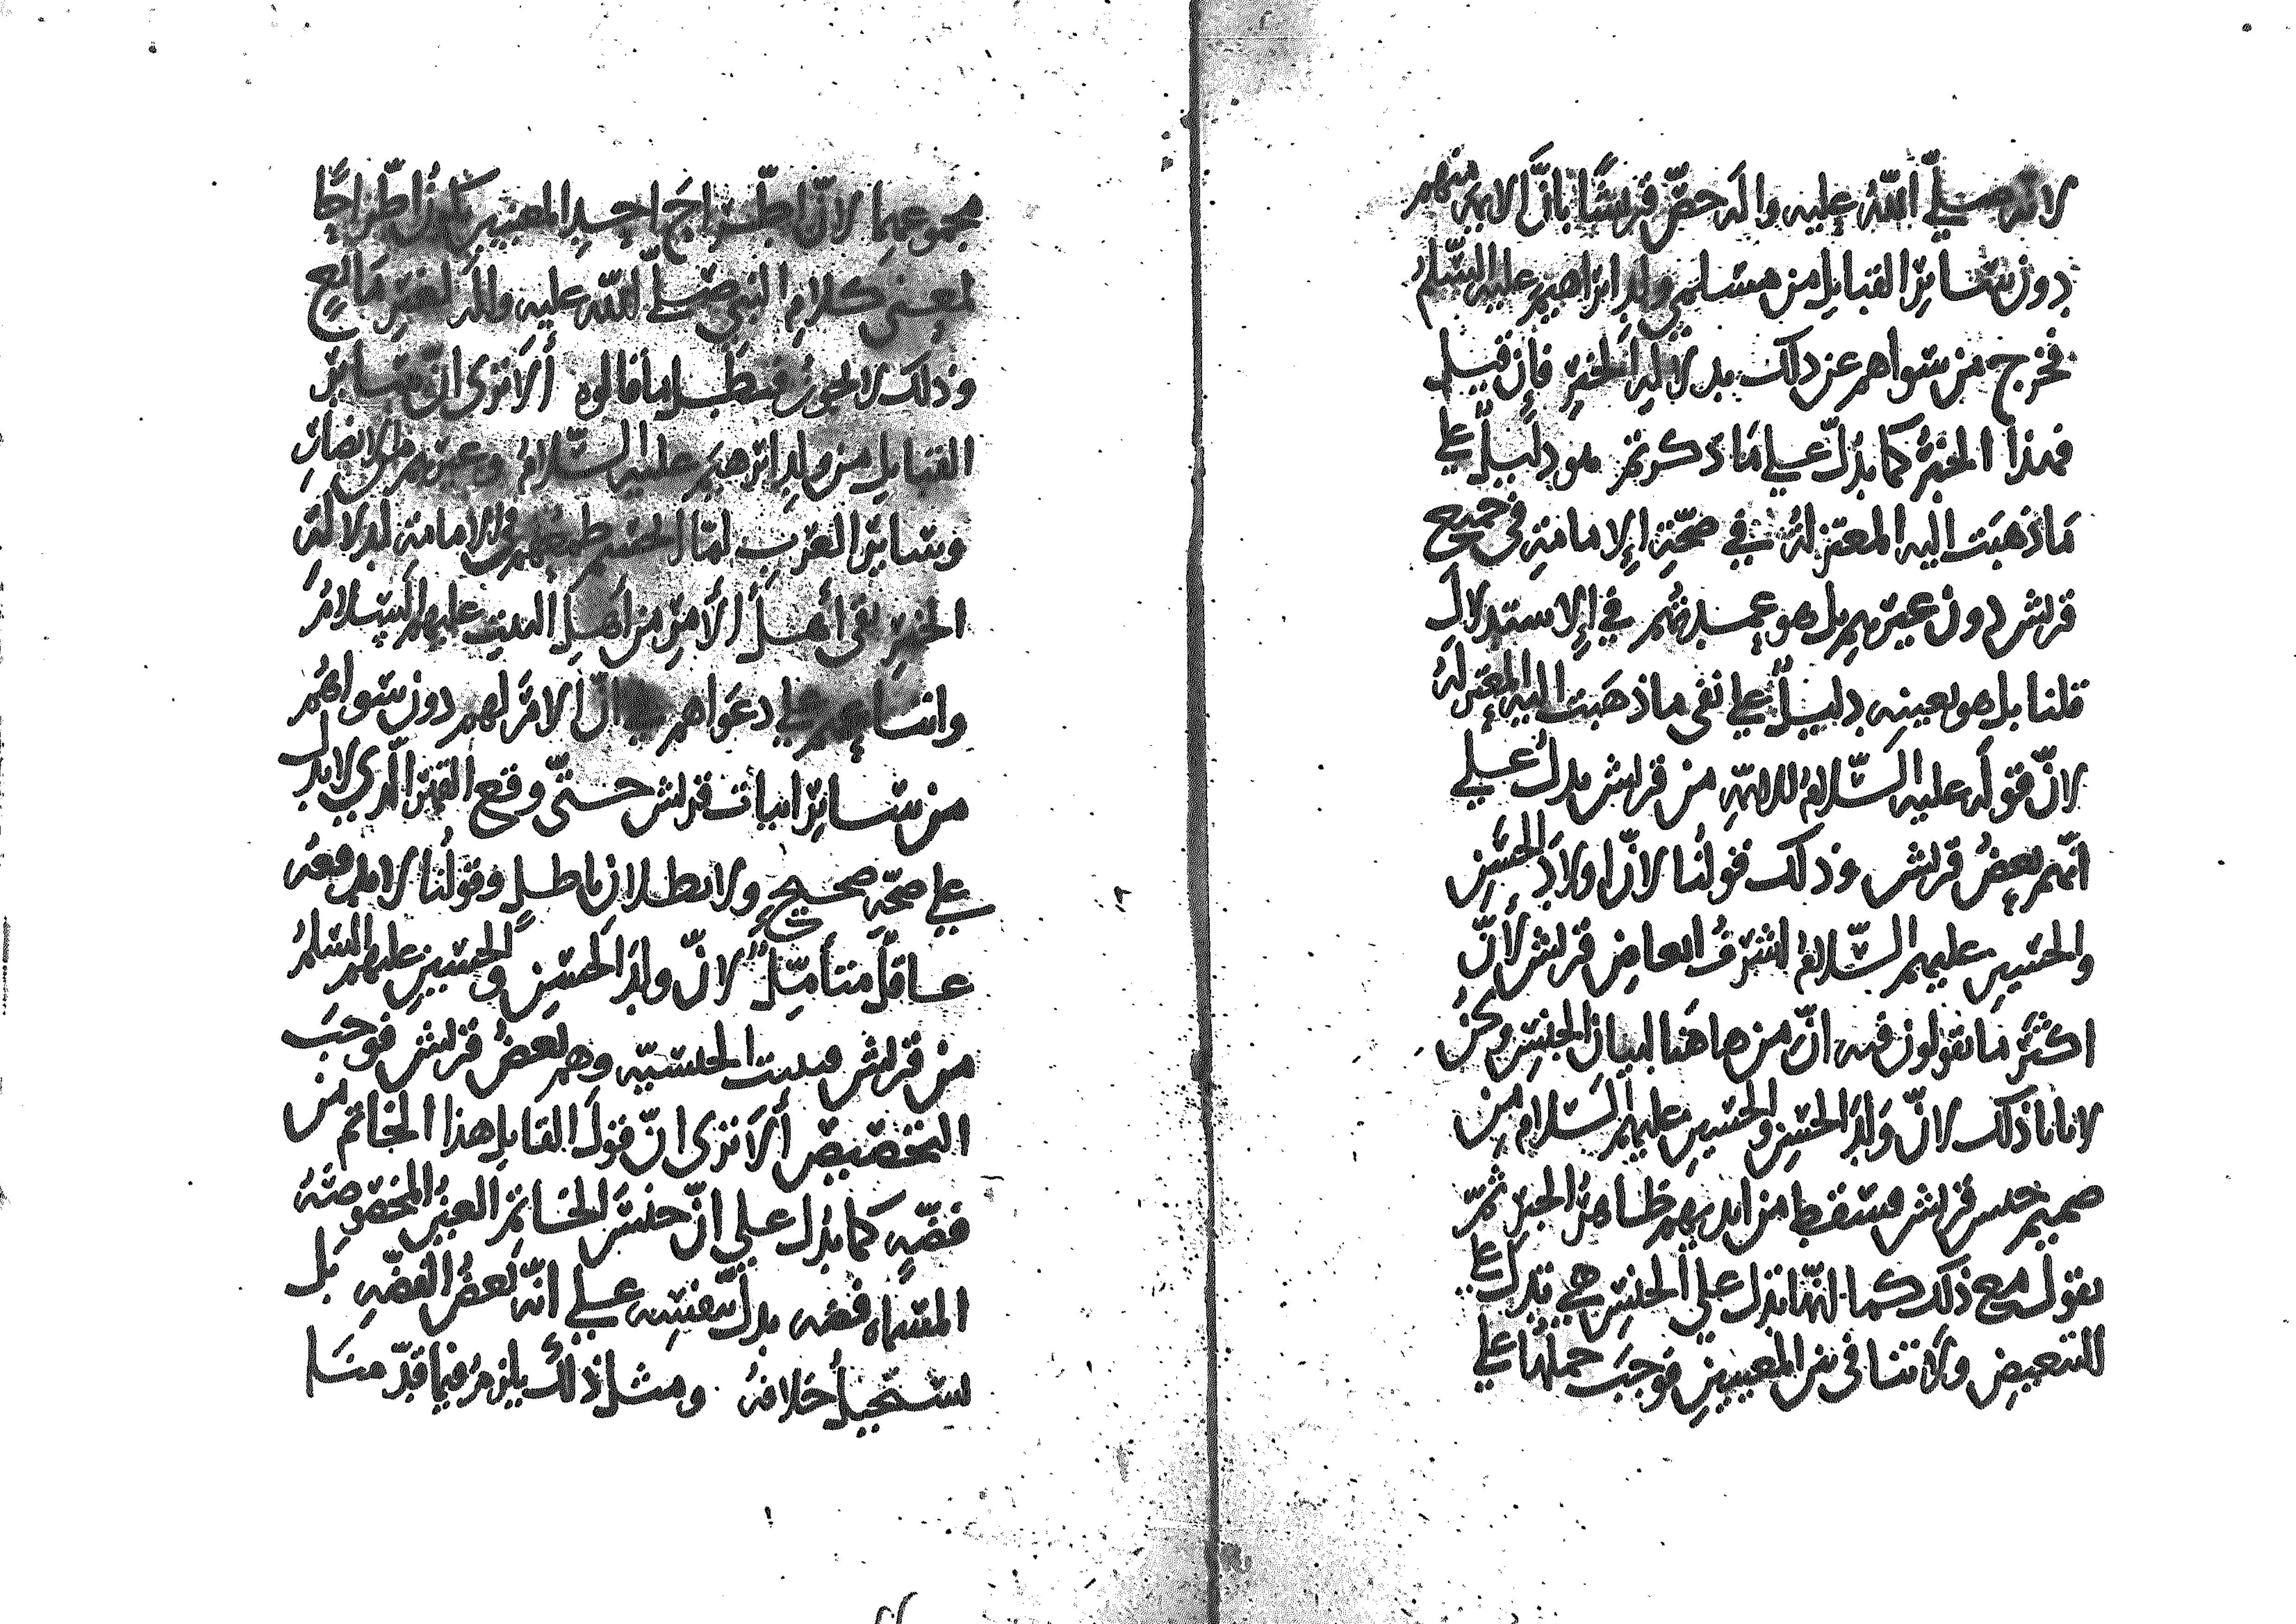 لانه صلى الله عليه واله خص قريشا بان الايمة منهم
دون سائر القبايل من مسلمي ولد ابراهيم عليه السلم
فخرج من سواهم عن ذلك بدلالة الخبر فان قيل
فهذا الخبر كما يدل على ما ذكرتم هو دليل على
ما ذهبت اليه المعتزلة في صحة الامامة في جميع
قريش دون غيرهم بل هو عمدتهم في الاستدلال
قلنا بل هو بعينه دليل على نفي ما ذهبت اليه المعتزلة
لان قوله عليه السلام الايمة من قريش يدل على
انهم بعض قريش وذلك قولنا لان اولاد الحسن
والحسين عليهم السلام اشرف ابعاض قريش لان
اكثر ما يقولون فيه ان من هاهنا لبيان الجنس ونحن
لا نابا ذلك لان ولد الحسن والحسين عليهم السلام من
صميم جنس قريش فسقط من ايديهم ظاهر الخبر ثم
نقول مع ذلك كما انها تدل على الجنس هي تدل على
التبعيض ولا تنافي بين المعنيين فوجب حملها على
مجموعهما لان اطراح احد المعنيين يكون اطراحا
لمعنى كلام النبي صلى الله عليه واله لغير مانع
وذلك لا يجوز فبطل ما قالوه الا ترى ان سائر
القبايل من ولد ابرهيم عليه السلام وغيرهم من الانصار
وسائر العرب لما انحسم طمعهم في الامامة لدلالة
الخبر بقي اهل الامر من اهل البيت عليهم السلام
واتباعهم على دعواهم في ان الامر لهم دون سواهم
من سائر ابيات قريش حتى وقع القهر الذي لا يدل
على صحة صحيح ولا بطلان باطل وقولنا لا يدفعه
عاقل متأمل لان ولد الحسن والحسين عليهم السلم
من قريش فبنت الجنسية وهم بعض قريش فوجب
التخصيص الا ترى ان قول القايل هذا الخاتم من
فضة كما يدل على ان جنس الخاتم العين المخصوصة
المسماه فضه يدل بنفسه على انه بعض الفضة بل
يستحيل خلافه ومثل ذلك يلزم فيما قدمنا